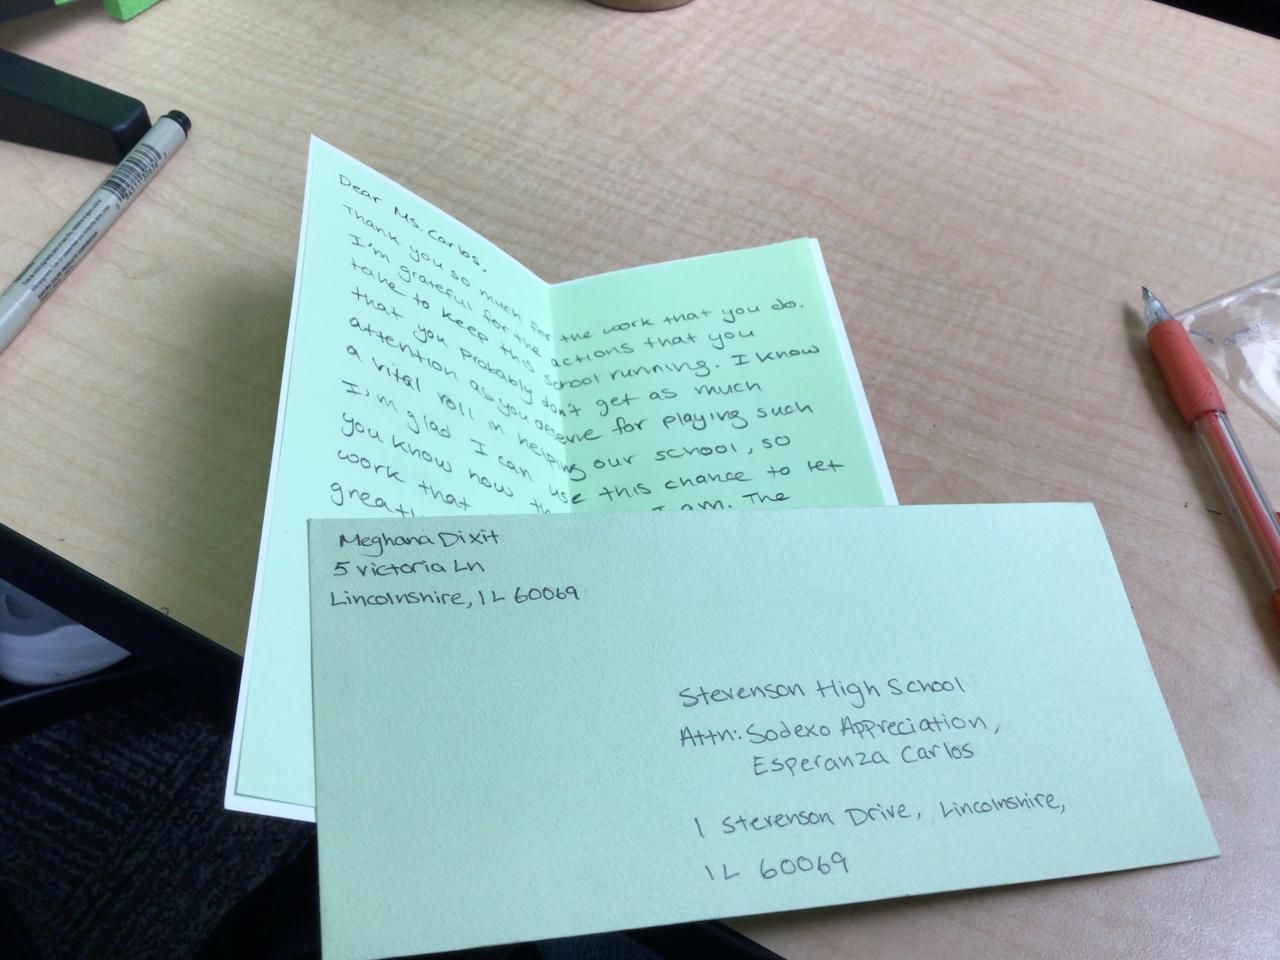 Dear Ms. Carlos,
Thank you so much for the work that you do.
I'm grateful for the actions that you
take to keep this school running. I know
that you probably don't get as much
attention as you deserve for playing such
a vital roll in helping our school, so
I'm glad I can use this chance to let
you know how I am. The
work that
great
Meghana Dixit
5 Victoria Ln
Lincolnshire, IL 60069
Stevenson High School
Attn: Sodexo Appreciation,
Esperanza Carlos
1 Stevenson Drive, Lincolnshire,
IL 60069